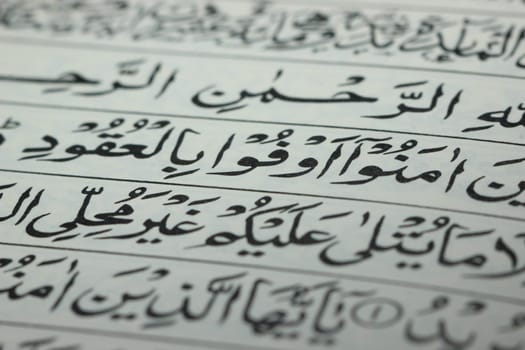 لهِ الرَّحْمٰنِ الرَّحِ
يْنَ اٰمَنُوْۤا اَوْفُوْا بِالْعُقُوْدِ
لَا مَا يُتْلٰى عَلَيْكُمْ غَيْرَ مُحِلِّى ال
يْدُ ۝١ يٰۤاَيُّهَا الَّذِيْنَ اٰمَنُ